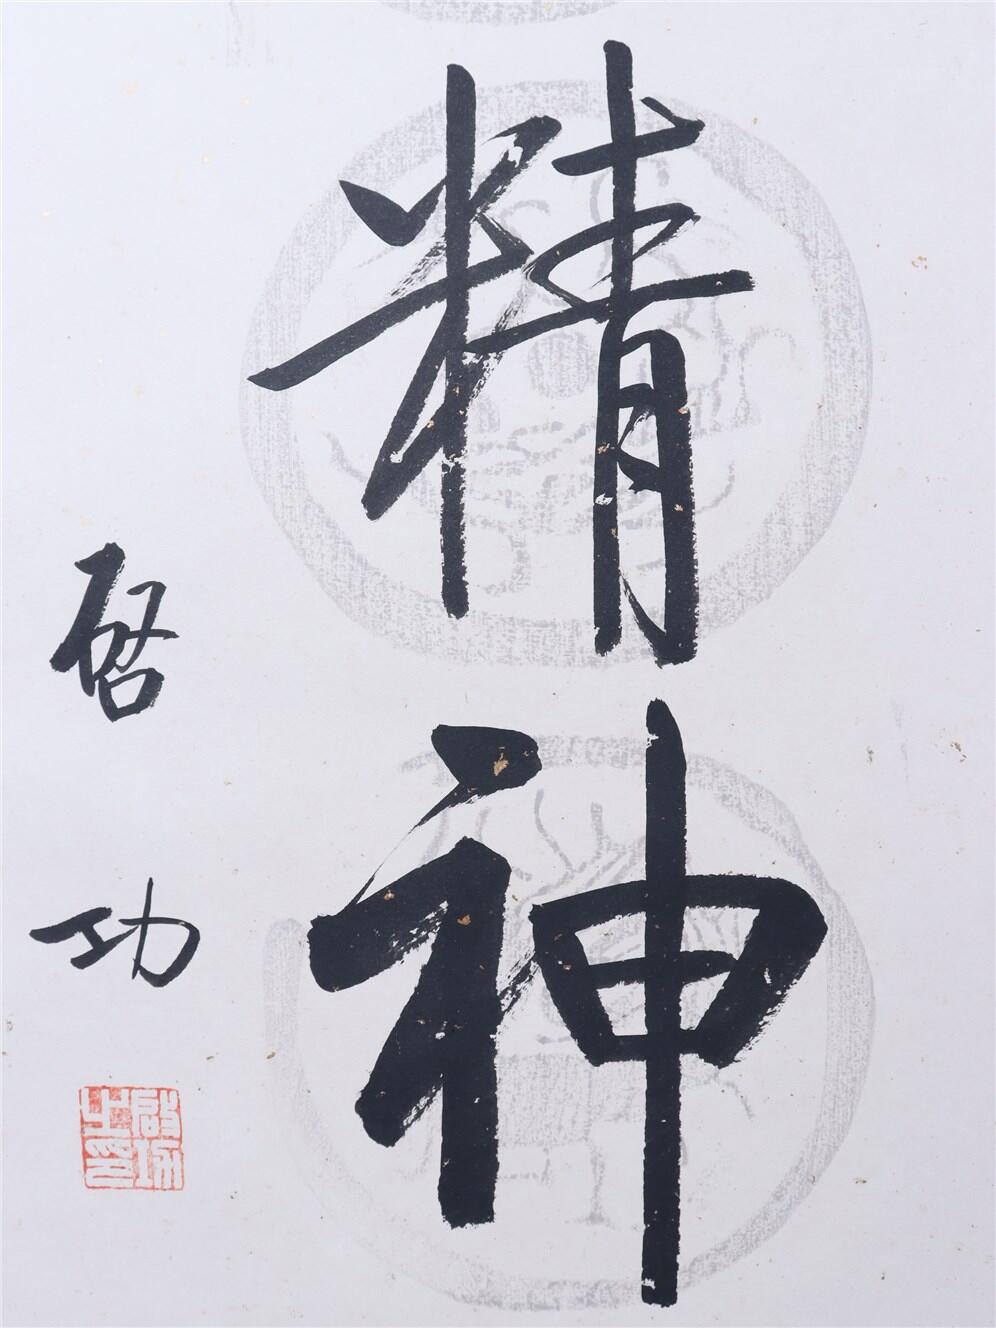 精神
启功
启功之印